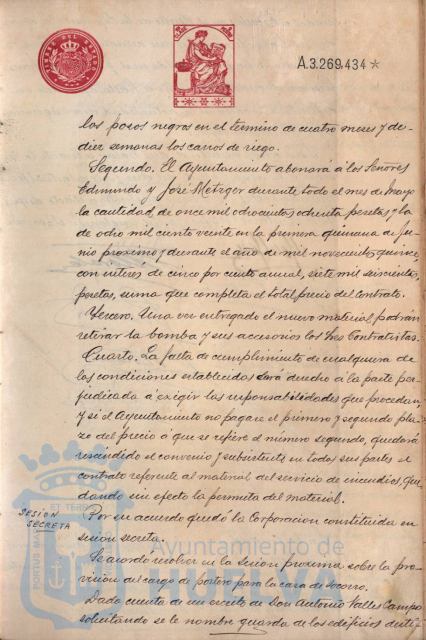 A.3.269.434*
los pozos negros en el termino de cuatro meses y de
diez semanas los carros de riego.
Segundo. El Ayuntamiento abonará á los Señores
Edmundo y José Metzger durante todo el mes de Mayo
la cantidad de once mil ochocientas ochenta pesetas y la
de ocho mil ciento veinte en la primera quincena de Ju-
nio proximo y durante el año de mil novecientos quince,
con interés de cinco por ciento anual, siete mil seiscientas
pesetas, suma que completa el total precio del contrato.
Tercero. Una vez entregado el nuevo material podrán
retirar la bomba y sus accesorios los Sres Contratistas.
Cuarto. La falta de cumplimiento de cualquiera de
las condiciones establecidas dará derecho á la parte per-
judicada á exigir las responsabilidades que procedan
y si el Ayuntamiento no pagare el primero y segundo pla-
zo del precio á que se refiere el número segundo, quedará
rescindido el convenio y subsistente en todas sus partes el
contrato referente al material del servicio de incendios, que-
dando sin efecto la permuta del material.
SESIÓN
SECRETA
Por su acuerdo quedó la Corporacion constituida en
sesión secreta.
Se acordó resolver en la sesión proxima sobre la pro-
visión del cargo de portero para la casa de Socorro.
Dada cuenta de un escrito de Don Antonio Valles Campo
solicitando se le nombre guarda de los edificios
PORTUS MARIS ET TERRÆ
Ayuntamiento de
HUELVA